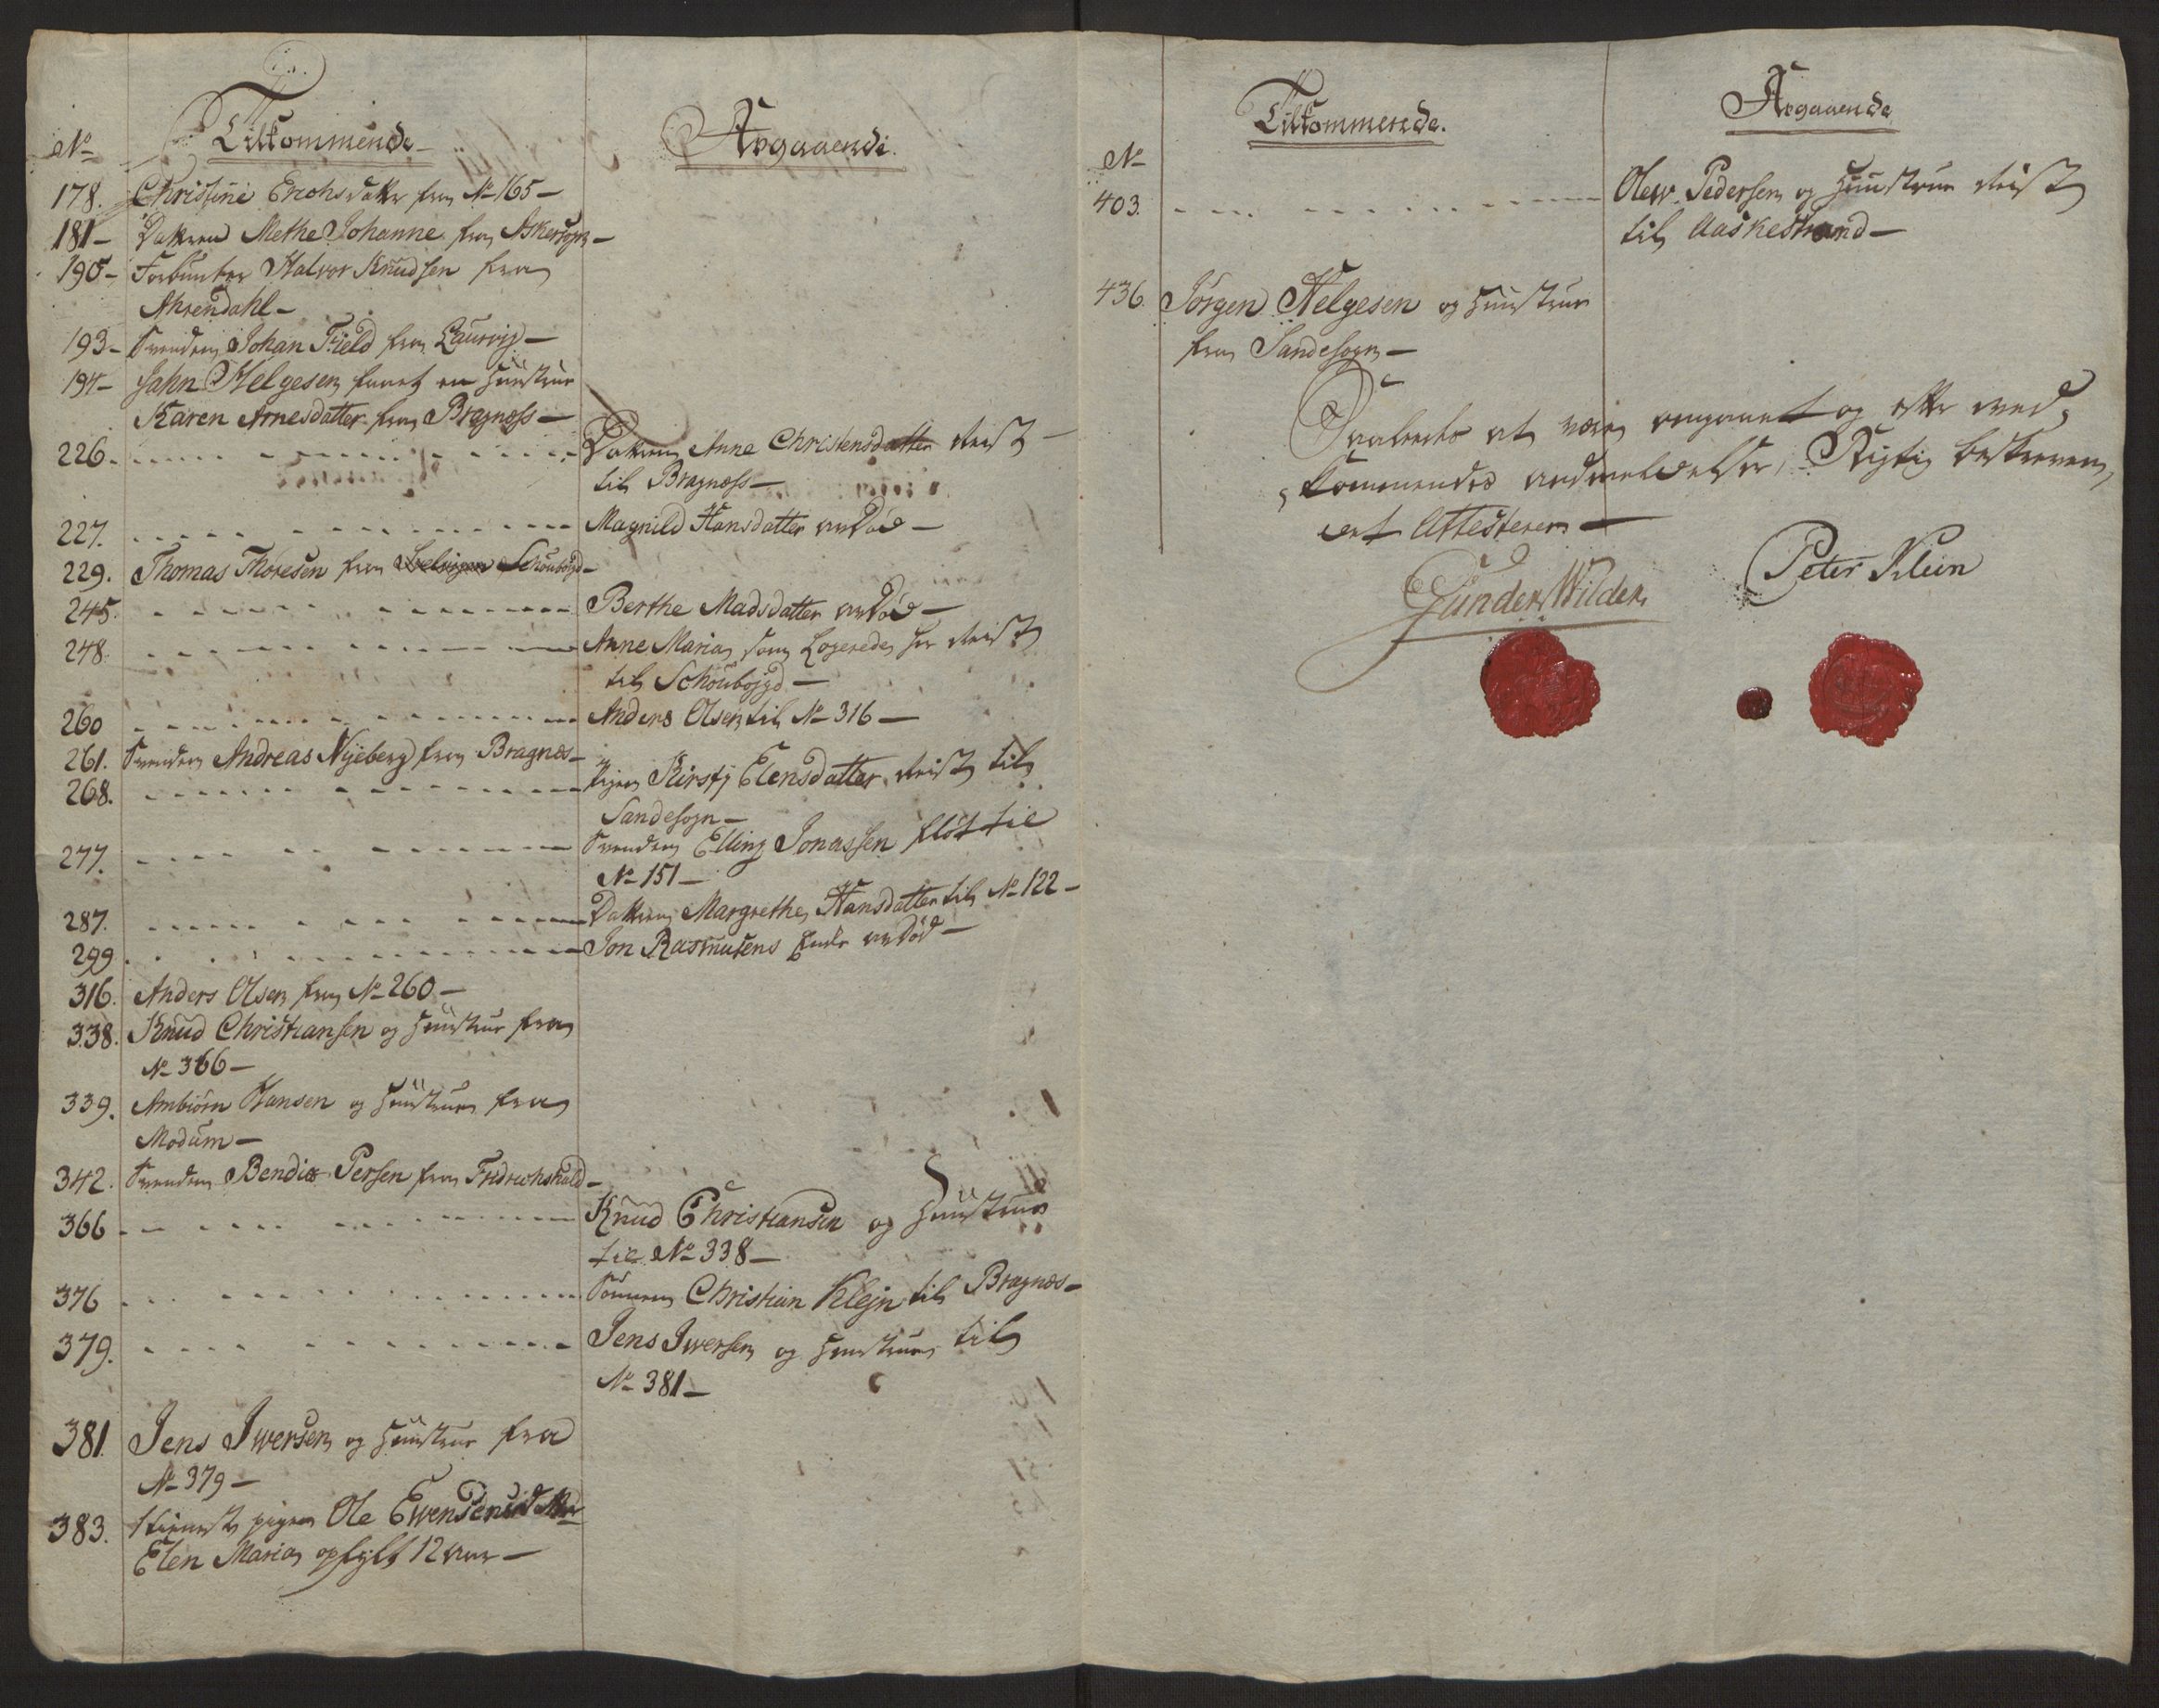 No Tilkommende Avgaaende
178. Christine Erichsdatter fra No 165
181 Datteren Methe Johanne fra Askersogn
190 Forbunter Halvor Knudsen fra
Ahrendahl
193 Svenden Johan Field fra Laurvig
194 Jahn Helgesen faaet en Huustrue
Karen Arnesdatter fra Bragness
226. Datteren Anne Christensdatter reist
til Bragness
227. Magnild Hansdatter ved Død
229. Thomas Thoresen fra Schoubøygd
245. Berthe Madsdatter ved Død
248. Anne Maria som Logerede her reist
til Schoubøjgd
260 Anders Olsen til No 316
261. Svenden Andreas Nyeberg fra Bragnes
268. Pigen Kirstj Elensdatter reist til
Sandesogn
277. Svenden Elling Jonassen fløt til
No 151
287. Datteren Margrethe Hansdatter til No 122
299 Jon Rasmusens Enke ved Død
316. Anders Olsen fra No 260
338. Knud Christiansen og Huustrue fra
No 366
339. Ambiørn Hansen og Huustrue fra
Modum
342. Svenden Bendix Persen fra Fridrichshald
366 Knud Christiansen og Huustrue
til No 338
376 Sønnen Christian Klejn til Bragnes
379. Jens Iwersen og Huustrue til
No 381
381. Jens Iwersen og Huustrue fra
No 379
383. pigen Ole Ewensens datter
Elen Maria opfylt 12 aar
No Tilkommende. Avgaaende
403. Olew Pedersen og Huustrue reist
til Aaskestrand
436. Jørgen Helgesen og Huustrue
fra Sandesogn
at være omgaaet og efter ved-
kommendes andmeldelser, Rigtig beskreven,
det Attesterer
Gunder Wilder Peter Klein